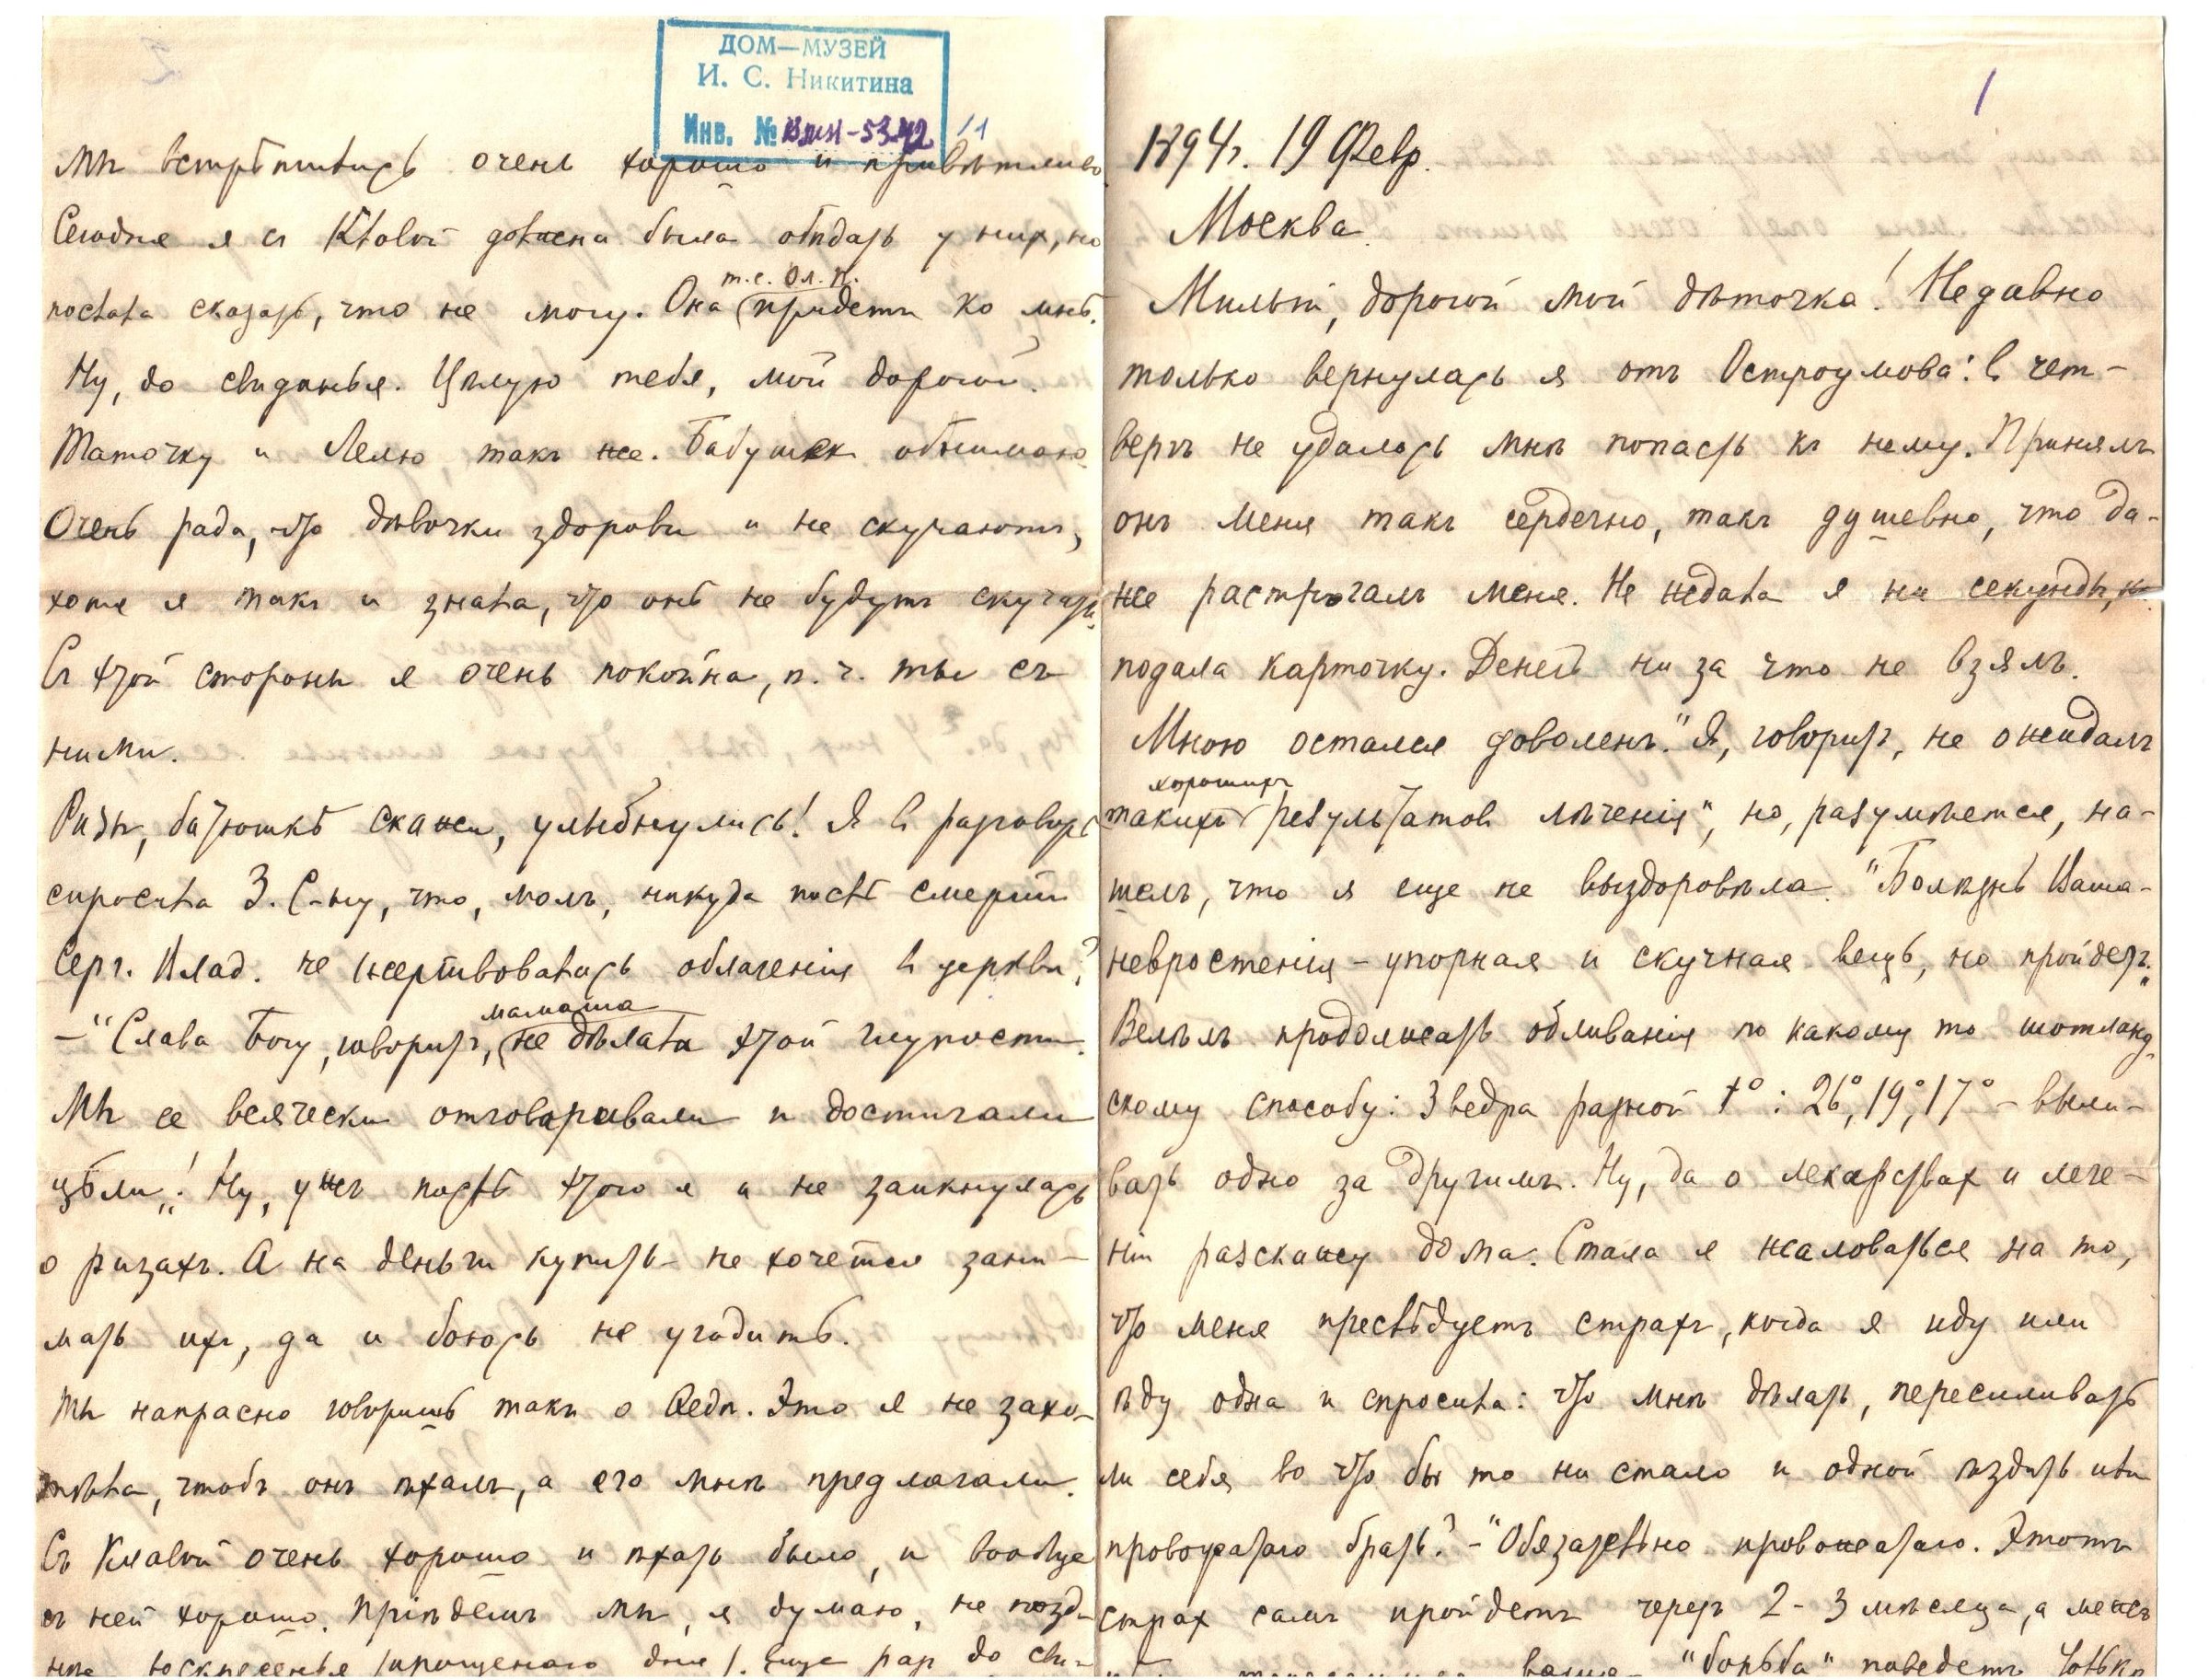 1
1894г. 19 Февр.
Москва.
Милый, дорогой мой дѣточка! Недавно
только вернулась я отъ Остроумова: в чет-
вергъ не удалось мнѣ попасть къ нему. Принялъ
онъ меня такъ сердечно, такъ душевно, что да-
же растрогалъ меня. Не ждала я ни секунды,
подала карточку. Денегъ ни за что не взялъ.
Мною остался доволенъ. "Я, говоритъ, не ожидалъ
хорошихъ
такихъ результатов лѣченія", но, разумѣется, на-
шелъ, что я еще не выздоровѣла. "Болѣзнь Ваша-
неврастенія - упорная и скучная вещь, но пройдетъ."
Велѣлъ продолжать обливанія по какому то шотланд-
скому способу: 3 ведра разной t°: 26°, 19°, 17° - выли-
вать одно за другимъ. Ну, да о лекарствах и лече-
ніи разскажу дома. Стала я жаловаться на то,
что меня преслѣдуетъ страхъ, когда я иду или
ѣду одна и спросила: что мнѣ дѣлать, пересиливать
ли себя во что бы то ни стало и одной ѣздить или
провожатаго брать? - "Обязательно провожатаго. Этотъ
страх самъ пройдетъ черезъ 2-3 мѣсяца, а
"борьба" поведетъ только
ДОМ—МУЗЕЙ
И. С. Никитина
Инв. № 11
мы встрѣтились очень хорошо и привѣтливо
Сегодня я съ Клавой должна была обѣдать у них, но
послала сказать, что не могу. Она (придетъ ко мнѣ.
т.е. Ол. П.
Ну, до свиданья. Цѣлую тебя, мой дорогой.
Таточку и Лелю такъ же. Бабушек обнимаю.
Очень рада, что дѣвочки здоровы и не скучаютъ,
хотя я такъ и знала, что онѣ не будутъ скучать.
Съ этой стороны я очень покойна, п. ч. ты съ
ними.
Ризы, батюшкѣ скажи, улыбнулись! Я в разговорѣ
спросила З. С-ну, что, молъ, никуда послѣ смерти
Серг. Влад. не жертвовалось облаченія в церкви?
мамаша
- "Слава Богу, говоритъ, (не дѣлала этой глупости.
Мы ее всячески отговаривали и достигали
цѣли"! Ну, ужъ послѣ этого я и не заикнулась
о ризахъ. А на деньги купить не хочется зани-
мать ихъ, да и боюсь не угодить.
Ты напрасно говоришь такъ о Ѳедѣ. Это я не захо-
тѣла, чтобъ онъ ѣхалъ, а его мнѣ предлагали.
Съ Клавой очень хорошо и ѣхать было, и вообще
съ ней хорошо. Пріѣдемъ мы, я думаю, не позд-
нѣе воскресенья /прощенаго дня/. Еще раз до сви-